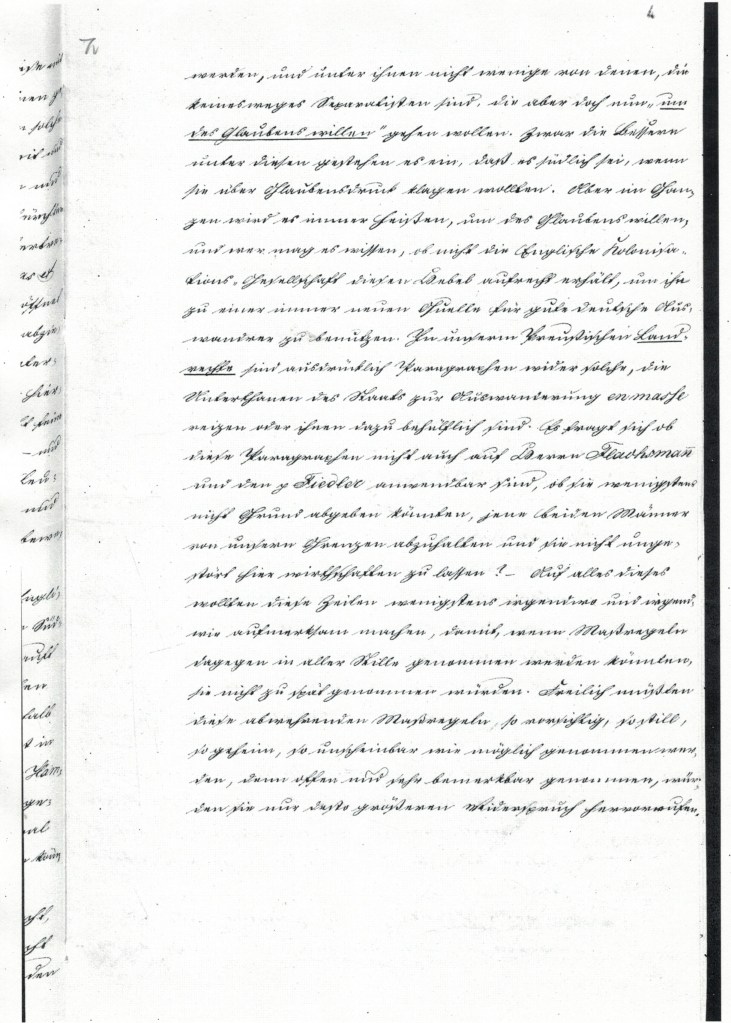 4
werden, und unter ihnen nicht wenige von denen, die
keinesweges Separatisten sind, die aber doch nun „um
des Glaubens willen" gehen wollen. Zwar die Bessern
unter diesen gestehen es ein, daß es sündlich sei, wenn
sie über Glaubensdruck klagen wollten. Aber im Gan-
zen wird es immer heißen, um des Glaubens willen,
und wer mag es wissen, ob nicht die Englische Kolonisa-
tions-Gesellschaft diesen Hebel aufrecht erhält, um ihn
zu einer immer neuen Quelle für gute deutsche Aus-
wandrer zu benutzen. In unserm Preußischen Land-
rechte sind ausdrücklich Paragraphen wider solche, die
Unterthanen des Staats zur Auswanderung en masse
reizen oder ihnen dazu behülflich sind. Es fragt sich ob
diese Paragraphen nicht auch auf Herrn Flachsmañ
und den p Fiedler anwendbar sind, ob sie wenigstens
nicht Grund abgeben könnten, jene beiden Männer
von unsern Grenzen abzuhalten und sie nicht unge-
stört hier wirthschaften zu lassen? – Auf alles dieses
wollten diese Zeilen wenigstens irgendwo und irgend-
wie aufmerksam machen, damit, wenn Maßregeln
dagegen in aller Stille genommen werden könnten,
sie nicht zu spät genommen würden. Freilich müßten
diese abwehrenden Maßregeln, so vorsichtig, so still,
so geheim, so unscheinbar wie möglich genommen wer-
den, denn offen und sehr bemerkbar genommen, wür-
den sie nur desto größeren Widerspruch hervorrufen.